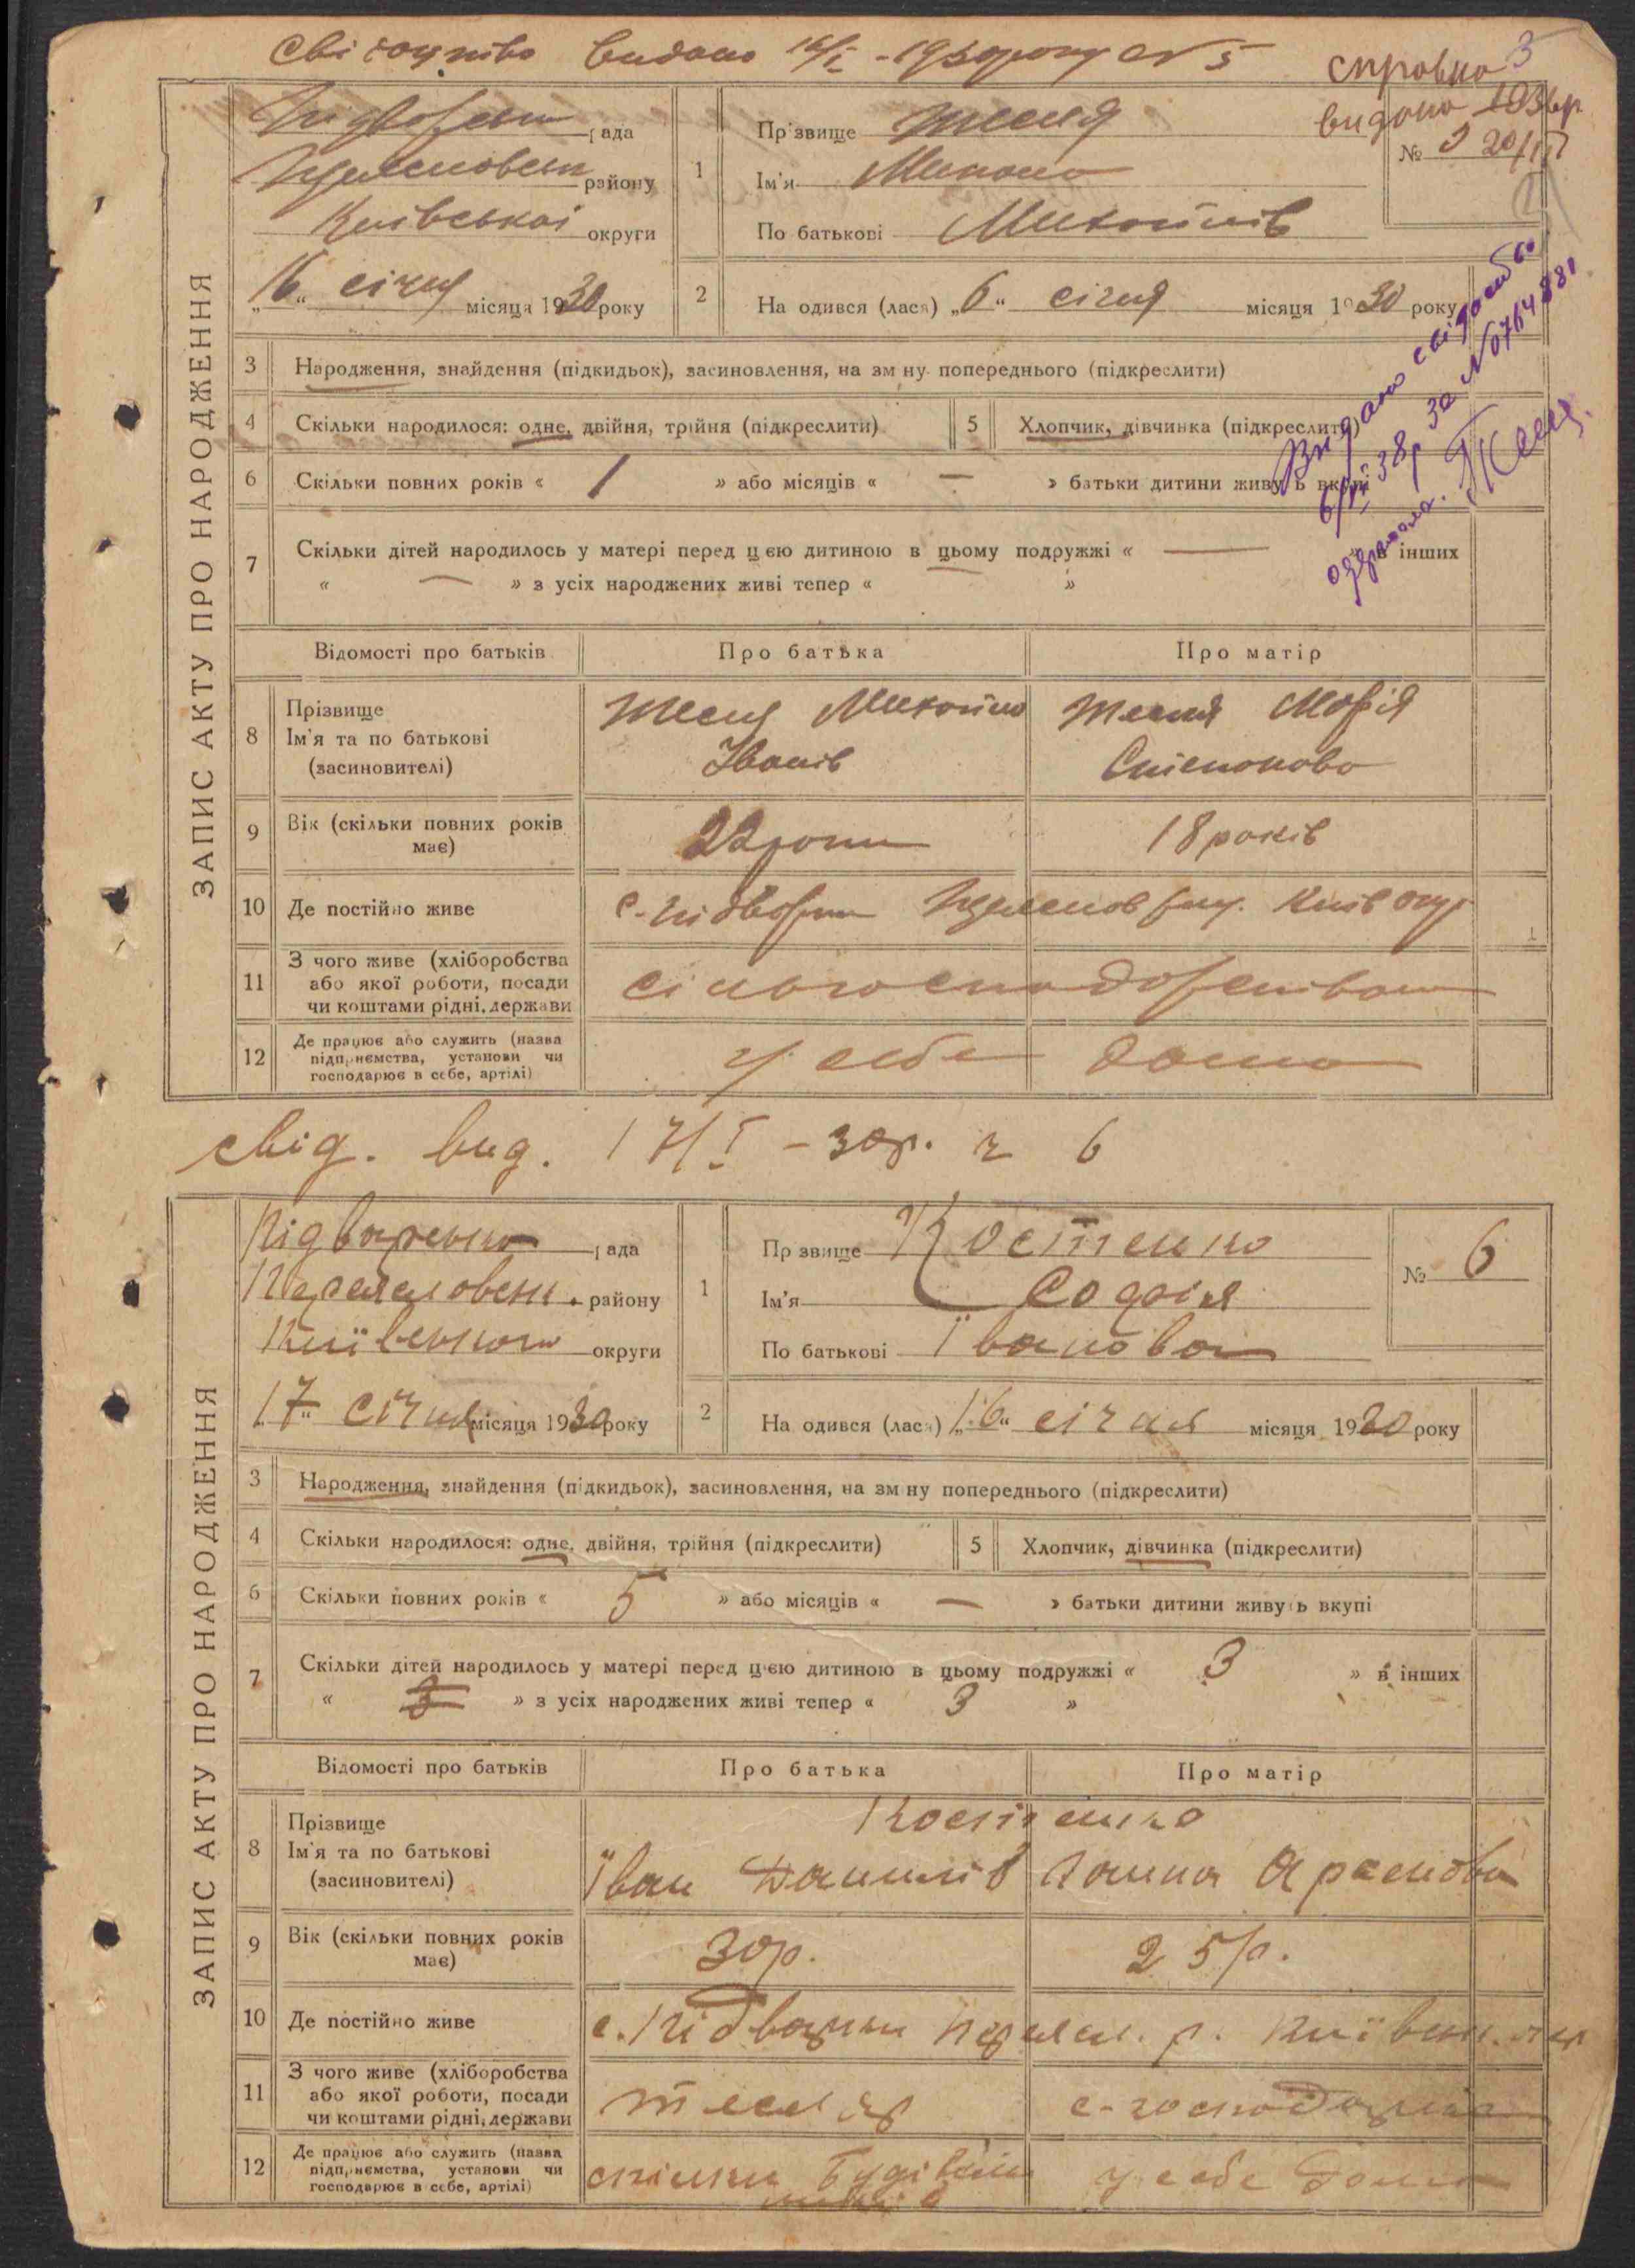 Свідоцтво видано 16/I - 1930 року № 5
3
справка
видано 193 р
ЗАПИС АКТУ ПРО НАРОДЖЕННЯ
рада
району
Київської округи
„16“ січня місяця 1930 року
1
Прізвище Тесля
Ім'я
По батькові Миколаїв
№
2
На одився (лася) „6“ січня місяця 1930 року
Видано свідоцтво
38р за № 0764881
одержала.
3
Народження, знайдення (підкидьок), засиновлення, на зм ну попереднього (підкреслити)
4
Скільки народилося: одне, двійня, трійня (підкреслити)
5
Хлопчик, дівчинка (підкреслити)
6
Скільки повних років « 1 » або місяців « — » батьки дитини живуть вкупі
7
Скільки дітей народилось у матері перед цією дитиною в цьому подружжі « — » в інших
« — » з усіх народжених живі тепер « »
Відомості про батьків
Про батька
Про матір
8
Прізвище
Ім'я та по батькові
(засиновителі)
Тесля Миколай
Іванів
Тесля Марія
Степанова
9
Вік (скільки повних років
має)
22 роки
18 років
10
Де постійно живе
с. Підварки Переяслов рну. Київ окр
11
З чого живе (хліборобства
або якої роботи, посади
чи коштами рідні, держави
сільгосподарством
12
Де працює або служить (назва
підприємства, установи чи
господарює в себе, артілі)
у себе дома
свід. вид. 17/I – 30р. ч 6
ЗАПИС АКТУ ПРО НАРОДЖЕННЯ
Підварська рада
Переясловськ. району
округи
„17“ січня місяця 1930 року
1
Прізвище Костенко
Ім'я Софія
По батькові Іванова
№ 6
2
На одився (лася) „16“ січня місяця 1930 року
3
Народження, знайдення (підкидьок), засиновлення, на зм ну попереднього (підкреслити)
4
Скільки народилося: одне, двійня, трійня (підкреслити)
5
Хлопчик, дівчинка (підкреслити)
6
Скільки повних років « 5 » або місяців « — » батьки дитини живуть вкупі
7
Скільки дітей народилось у матері перед цією дитиною в цьому подружжі « 3 » в інших
« » з усіх народжених живі тепер « 3 »
Відомості про батьків
Про батька
Про матір
8
Прізвище
Ім'я та по батькові
(засиновителі)
Костенко
Іван Данилів
Ганна
9
Вік (скільки повних років
має)
30р.
25р.
10
Де постійно живе
с. Підварки Переясл. р. Київськ. окр
11
З чого живе (хліборобства
або якої роботи, посади
чи коштами рідні, держави
тесляр
с-господарка
12
Де працює або служить (назва
підприємства, установи чи
господарює в себе, артілі)
спілки Будівель
у себе дома